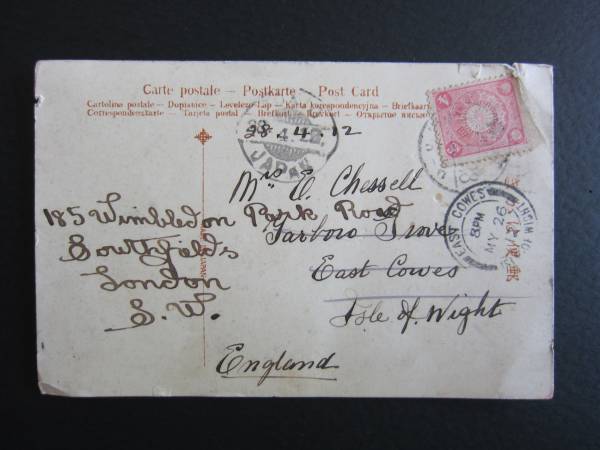 Carte postale — Postkarte — Post Card
Cartolina postale — Dopisnice — Levelező-Lap — Karta korespondencyjna — Briefkaart
Correspondenzkarte — Tarjeta postal — Brefkort — Brevkort — Открытое письмо
28.4.12
JAPAN
Mrs E. Chessell
185 Wimbledon Park Road
Southfields
London
S. W.
Tarbow Grove
East Cowes
Isle of Wight
England
EAST COWES
8 PM
MY 26
OF WIGHT